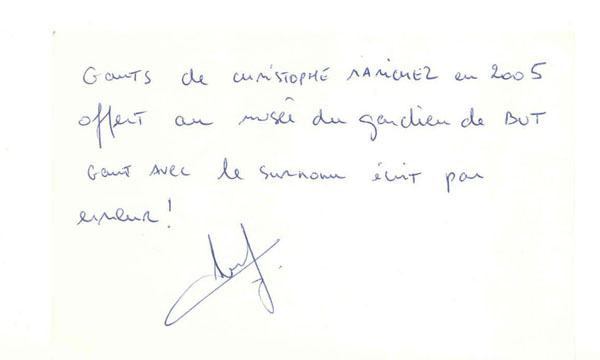 Gants de CHRISTOPHE MANICHEZ en 2005
offert au musée du gardien de BUT
Gant AVEC le surnom écrit par
erreur !